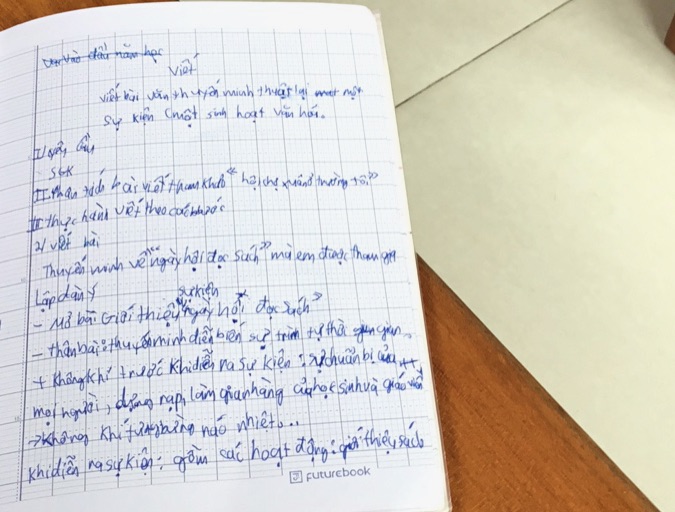 vào đầu năm học
Viết
viết bài văn thuyết minh thuật lại một
sự kiện (một sinh hoạt văn hóa.
I/ yêu cầu
SGK
II. Phân tích bài viết tham khảo "hội chợ xuân ở trường tôi"
III thực hành viết theo các bước
2/ viết bài
Thuyết minh về "ngày hội đọc sách" mà em được tham gia
Lập dàn ý
sự kiện
- Mở bài: Giới thiệu "ngày hội đọc sách"
- thân bài: thuyết minh diễn biến sự trình tự thời gian
+ Không khí trước khi diễn ra sự kiện: sự chuẩn bị của
mọi người, dựng rạp, làm gian hàng của học sinh và giáo viên
-> Không khí tưng bừng náo nhiệt...
khi diễn ra sự kiện: gồm các hoạt động: giới thiệu sách
FUTUREBOOK